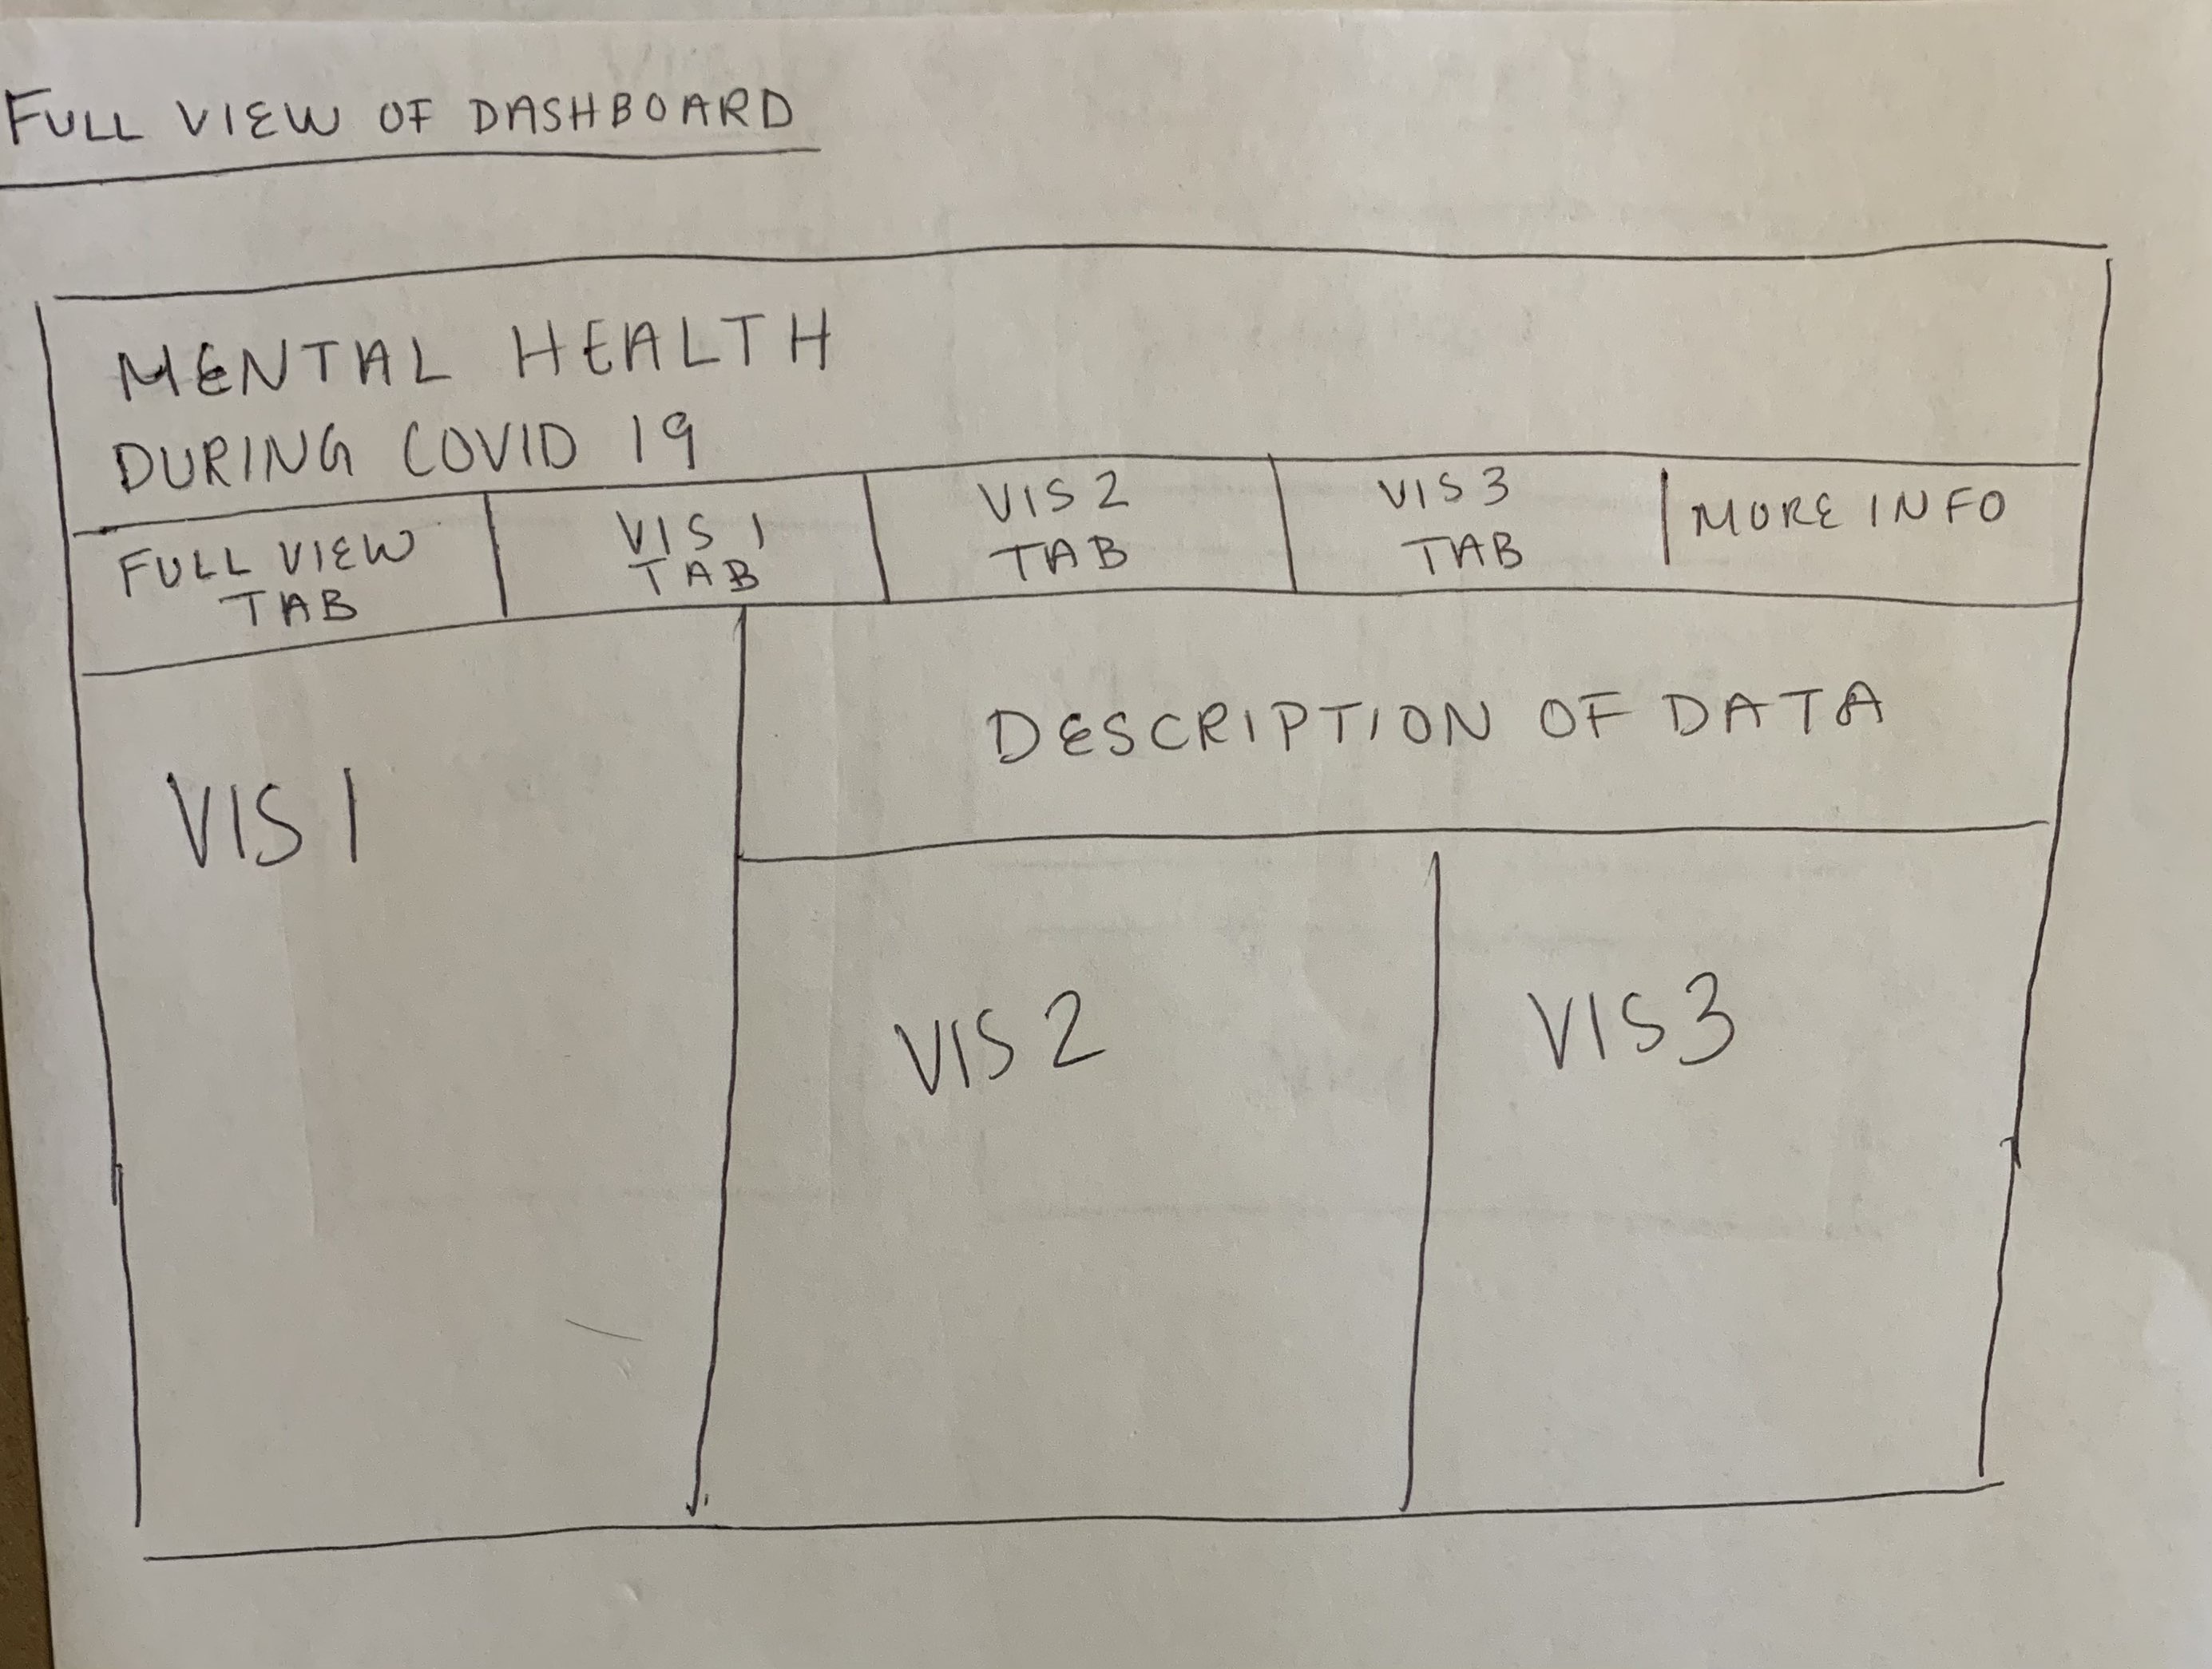 FULL VIEW OF DASHBOARD
MENTAL HEALTH
DURING COVID 19
FULL VIEW
TAB
VIS 1
TAB
VIS 2
TAB
VIS 3
TAB
MORE INFO
VIS 1
DESCRIPTION OF DATA
VIS 2
VIS 3